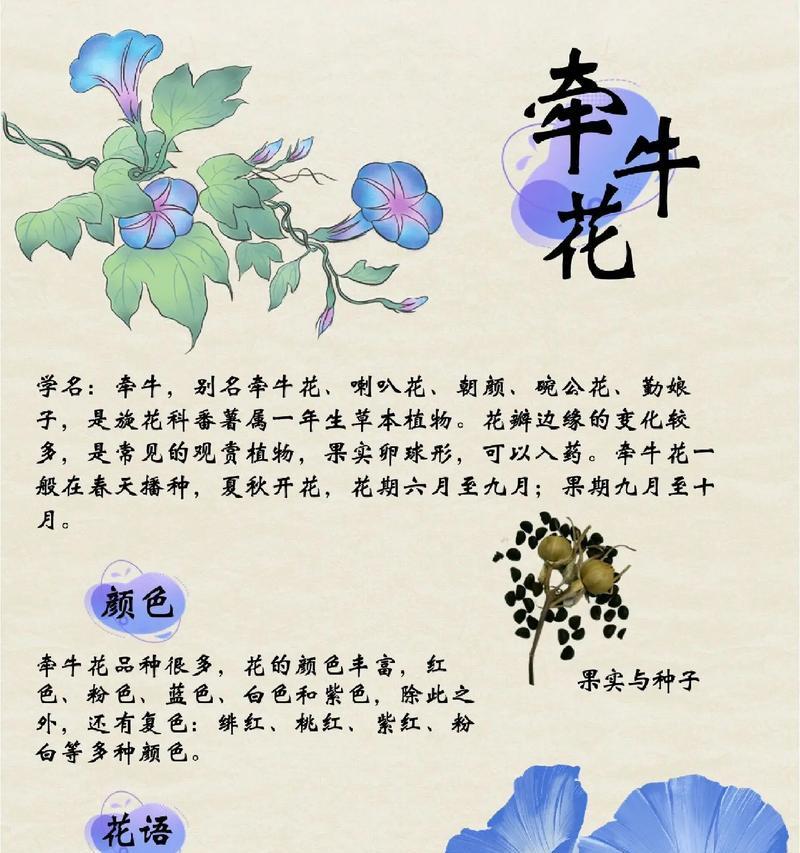 牵牛花
学名：牵牛，别名牵牛花、喇叭花、朝颜、碗公花、勤娘
子，是旋花科番薯属一年生草本植物。花瓣边缘的变化较
多，是常见的观赏植物，果实卵球形，可以入药。牵牛花一
般在春天播种，夏秋开花，花期六月至九月；果期九月至十
月。
颜色
牵牛花品种很多，花的颜色丰富，红
色、粉色、蓝色、白色和紫色，除此之
外，还有复色：绯红、桃红、紫红、粉
白等多种颜色。
果实与种子
花语